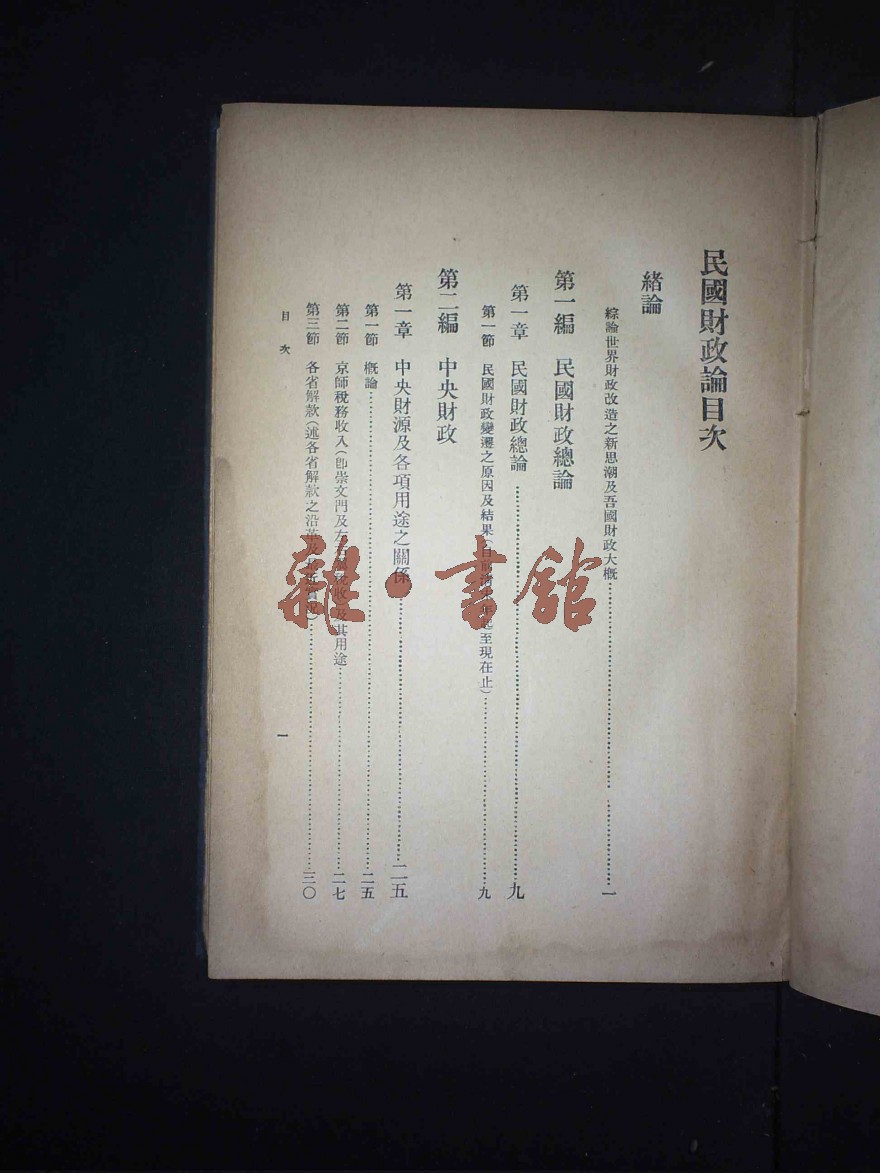 民國財政論目次
緒論
綜論世界財政改造之新思潮及吾國財政大概……一
第一編 民國財政總論
第一章 民國財政總論……九
第一節 民國財政變遷之原因及結果(自前清 起至現在止)……九
第二編 中央財政
第一章 中央財源及各項用途之關係……二五
第一節 概論……二五
第二節 京師稅務收入(卽崇文門及左右翼稅收)及其用途……二七
第三節 各省解款(述各省解款之沿革及 況)……三〇
目次
一
雜·書館